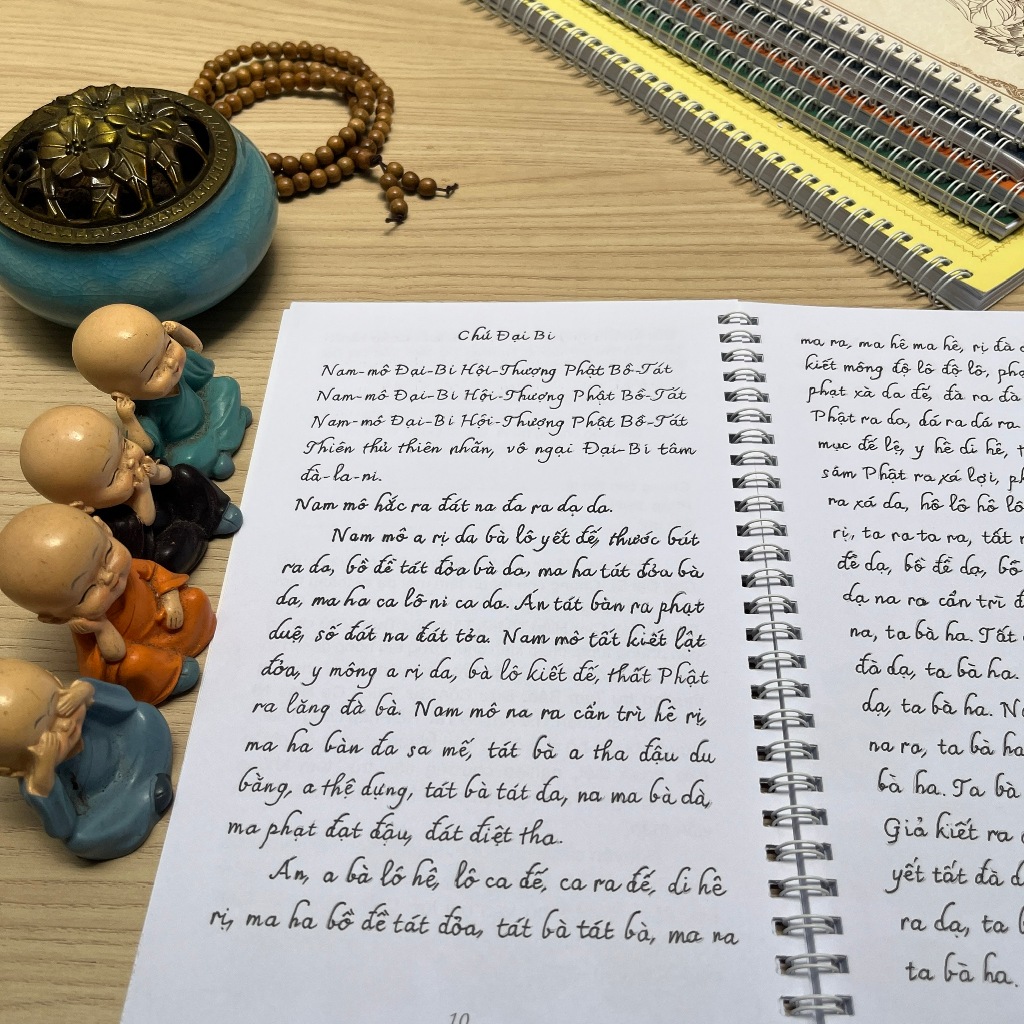 Chú Đại Bi
Nam-mô Đại-Bi Hội-Thượng Phật Bồ-Tát
Nam-mô Đại-Bi Hội-Thượng Phật Bồ-Tát
Nam-mô Đại-Bi Hội-Thượng Phật Bồ-Tát
Thiên thủ thiên nhãn, vô ngại Đại-Bi tâm
đà-la-ni.
Nam mô hắc ra đát na đa ra dạ da.
Nam mô a rị da bà lô yết đế, thước bút
ra da, bồ đề tát đỏa bà da, ma ha tát đỏa bà
da, ma ha ca lô ni ca da. Án tát bàn ra phạt
duệ, số đát na đát tỏa. Nam mô tất kiết lật
đỏa, y mông a rị da, bà lô kiết đế, thất Phật
ra lăng đà bà. Nam mô na ra cẩn trì hê rị,
ma ha bàn đa sa mế, tát bà a tha đậu du
bằng, a thệ dựng, tát bà tát đa, na ma bà dà,
ma phạt đạt đậu, đát điệt tha.
Án, a bà lô hê, lô ca đế, ca ra đế, di hê
rị, ma ha bồ đề tát đỏa, tát bà tát bà, ma na
10
ma ra, ma hê ma hê, rị đà
kiết mông độ lô độ lô,
phạt xà da đế, đà ra đà
Phật ra da, dá ra dá ra
mục đế lệ, y hê di hê,
sâm Phật ra xá lợi,
ra xá da, hô lô hô lô
rị, ta ra ta ra, tất
đề dạ, bồ đề dạ, bồ
dạ na ra cẩn trì
na, ta bà ha. Tất
đà dạ, ta bà ha.
dạ, ta bà ha.
na ra, ta bà ha
bà ha. Ta bà
Giả kiết ra
yết tất đà
ra dạ, ta
ta bà ha.